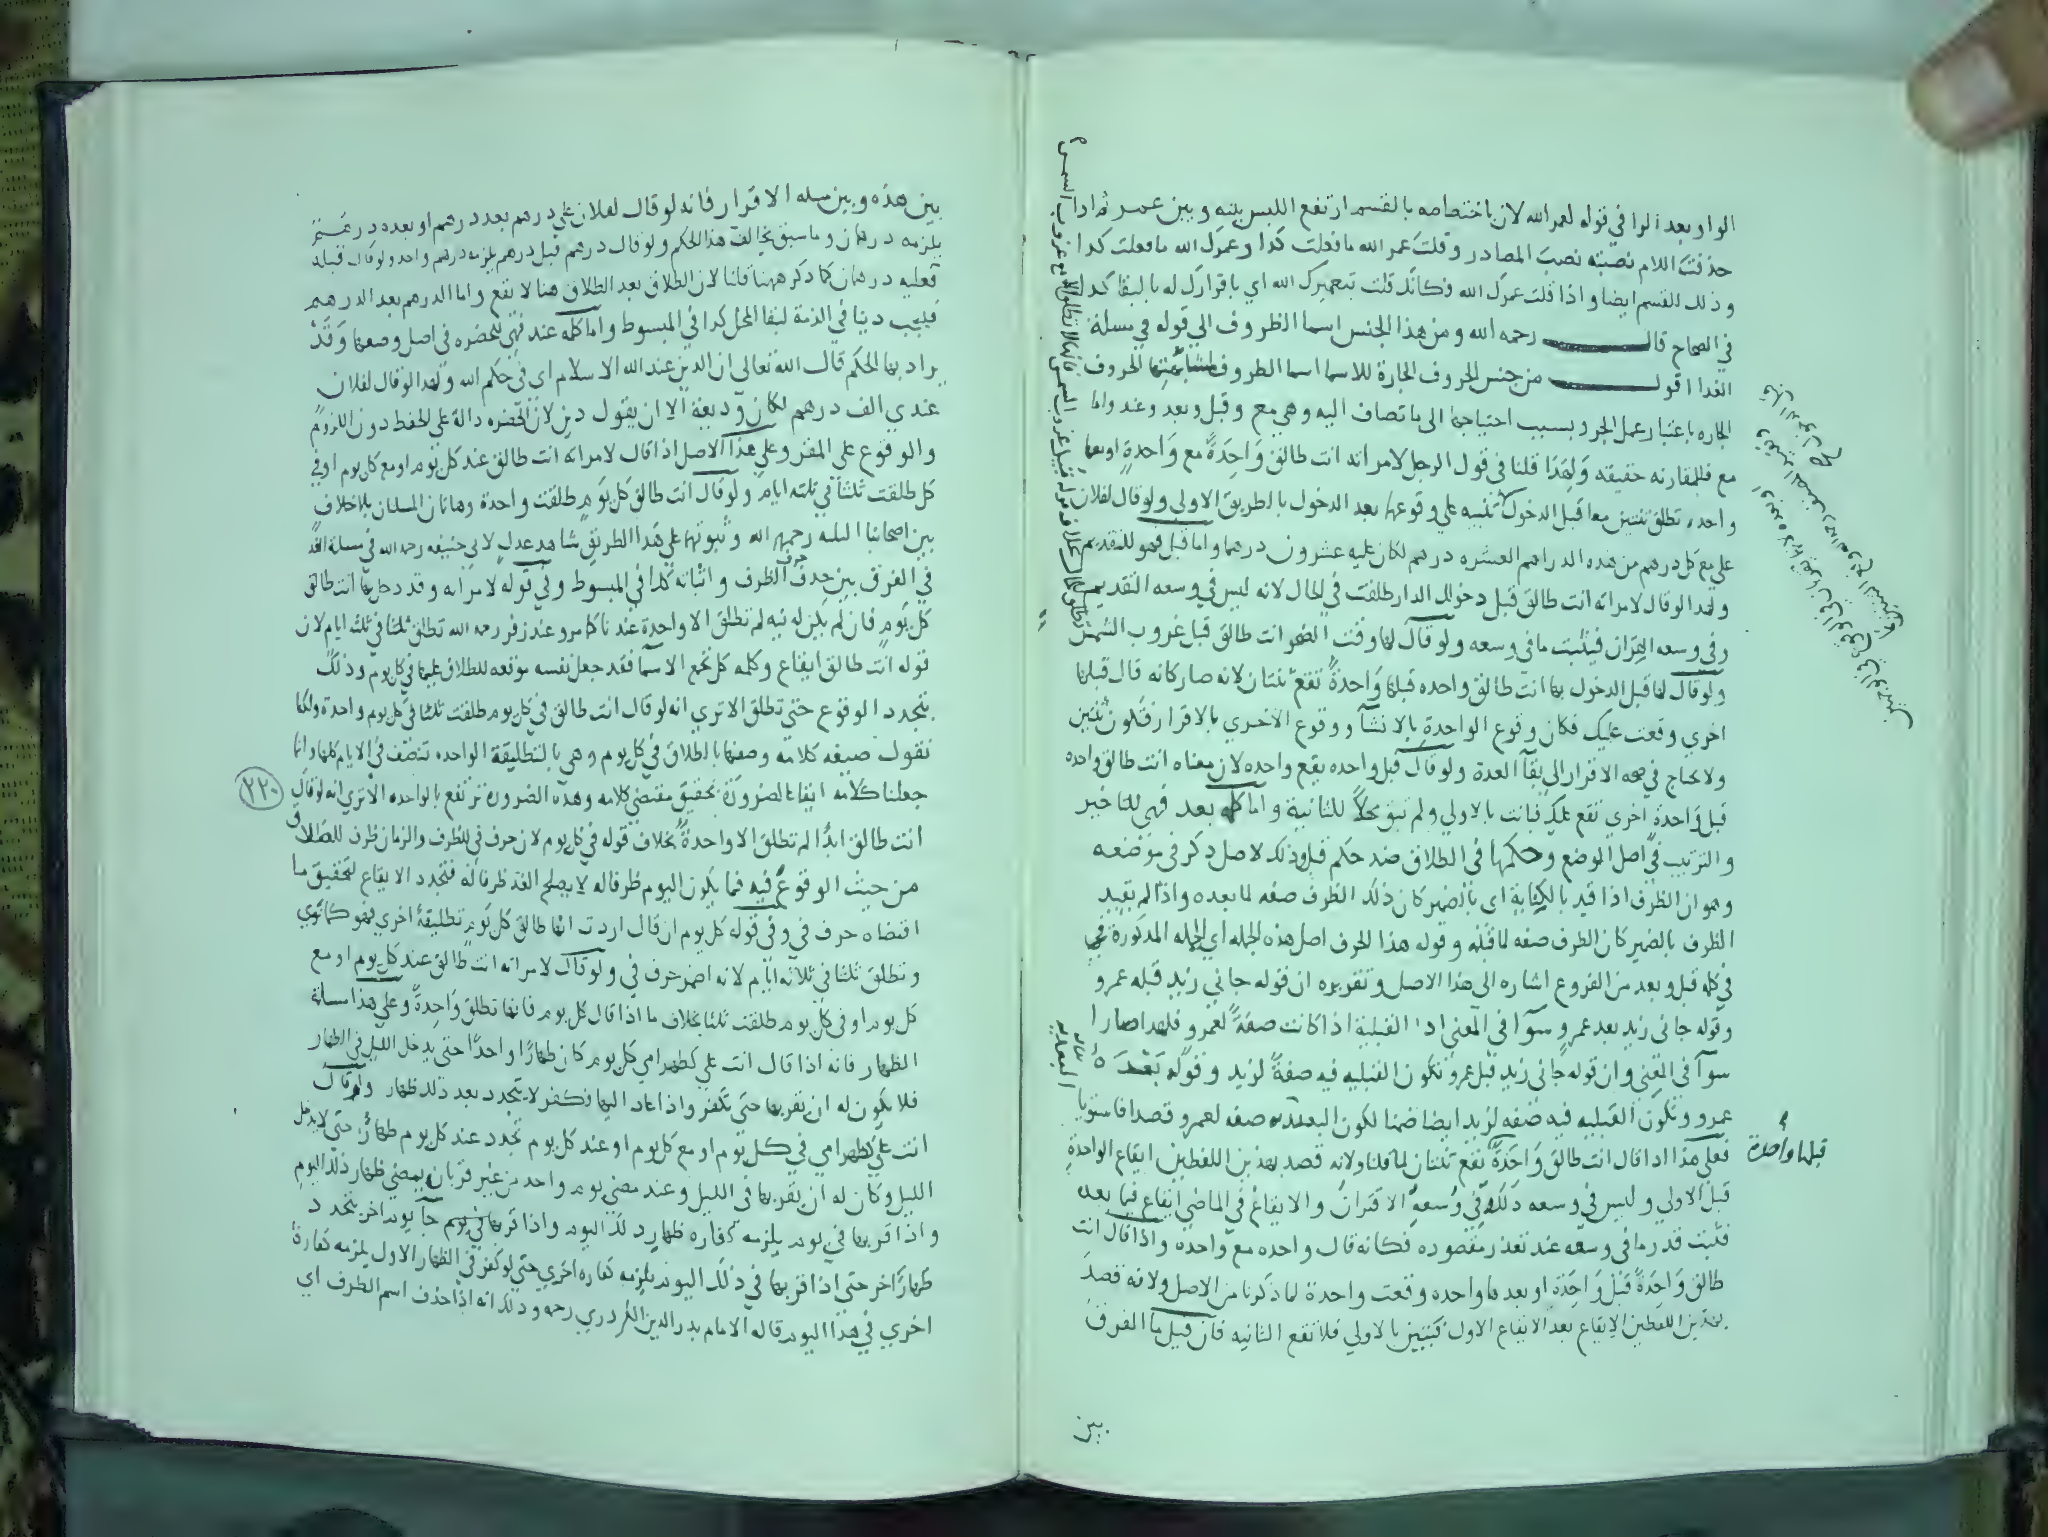 الواو بعد الرا في قوله لعمر الله لان باختصاصه بالقسم ارتفع اللبس بينه وبين عمر ثم اذا
حذفت اللام نصبته نصب المصادر وقلت عمر الله ما فعلت كذا وعمرك الله ما فعلت كذا
وذلك القسم ايضا واذا قلت عمرك الله فكانك قلت بتعميرك الله اي باقرارك له بالبقا كذا
في الصحاح قال رحمه الله ومن هذا الجنس اسما الظروف الي قوله في مسلة
الغدا اقول من جنس الحروف الجارة للاسما اسما الظروف لمشابهتها الحروف
الجاره باعتبار عمل الجر وبسبب احتياجها الى ما تضاف اليه وهي مع وقبل وبعد وعند واما
مع فللمقارنه حقيقه ولهذا قلنا في قول الرجل لامراته انت طالق واحدة مع واحدة او معها
واحده تطلق ثنتين معا قبل الدخول تنبيه علي وقوعهما بعد الدخول بالطريق الاولي ولو قال لفلان
علي مع كل درهم من هذه الدراهم العشره درهم لكان عليه عشرون درهما واما قبل فهو للتقديم
ولهذا لو قال لامراته انت طالق قبل دخولك الدار طلقت في الحال لانه ليس في وسعه التقديم
وفي وسعه القران فيثبت ما في وسعه ولو قال لها وقت الضحو انت طالق قبل غروب الشمس
ولو قال لها قبل الدخول بها انت طالق واحده قبلها واحدة تقع ثنتان لانه صار كانه قال قبلها
اخري وقعت عليك فكان وقوع الواحدة بالانشا ووقوع الاخري بالاقرار فتكون ثنتين
ولا يحتاج في صحه الاقرار الي بقا العدة ولو قال قبل واحده يقع واحده لان معناه انت طالق واحده
قبل واحدة اخري تقع عليك فبانت بالاولي ولم تبق محلا للثانية واما كلمه بعد فهي للتاخير
والترتيب في اصل الوضع وحكمها في الطلاق ضد حكم قبل وذلك لاصل ذكر في موضعه
وهو ان الظرف اذا قيد بالكناية اي بالضمير كان ذلك الظرف صفه لما بعده واذا لم يقيد
الظرف بالضمير كان الظرف صفه لما قبله وقوله هذا الحرف اصل هذه الجمله اي الجمله المذكورة
في كلمه قبل وبعد من الفروع اشاره الى هذا الاصل وتقريره ان قوله جاني زيد قبله عمرو
وقوله جاني زيد بعد عمرو سوا في المعني اذ القبلية اذا كانت صفة لعمرو فلهذا صارا
سوا في المعني وان قوله جاني زيد قبل عمرو تكون القبليه فيه صفة لزيد وقوله بعده
عمرو وتكون القبليه فيه صفه لزيد ايضا ضمنا لكون البعديه صفه لعمرو قصدا فاستويا
فعلي هذا اذا قال انت طالق واحدة تقع ثنتان لما قلنا ولانه قصد بهذين اللفظين ايقاع الواحدة
قبل الاولي وليس في وسعه ذلك وفي وسعه الاقتران والايقاع في الماضي ايقاع فيما بعده
فثبت قدر ما في وسعه عند تعذر مقصوده فكانه قال واحده مع واحده واذا قال انت
طالق واحدة قبل واحدة او بعدها واحده وقعت واحدة لما ذكرنا من الاصل ولانه قصد
بهذين اللفظين الايقاع بعد الايقاع الاول فتبين بالاولي فلا تقع الثانيه فان قيل ما الفرق
قبلها واحدة
بين
بين هذه وبين مسله الاقرار فانه لو قال لفلان علي درهم بعد درهم او بعده درهم
يلزمه درهمان وما سبق يخالف هذا الحكم ولو قال درهم قبل درهم يلزمه درهم واحد ولو قال قبله
فعليه درهمان كما ذكر ههنا قلنا لان الطلاق بعد الطلاق هنا لا يقع واما الدرهم بعد الدرهم
فيجب دينا في الذمة لبقا المحل كذا في المبسوط واما كلمه عند فهي للحضره في اصل وضعها وقد
يراد بها الحكم قال الله تعالى ان الدين عند الله الاسلام اي في حكم الله ولهذا لو قال لفلان
عندي الف درهم كان وديعة الا ان يقول دين لان الحضره دالة علي الحفظ دون اللزوم
والوقوع علي المقر وعلي هذا الاصل اذا قال لامراته انت طالق عند كل يوم او مع كل يوم او في
كل طلقت ثلثا في ثلثه ايام ولو قال انت طالق كل يوم طلقت واحدة وهاتان المسلتان بلا خلاف
بين اصحابنا الثلثه رحمهم الله وثبوتهما علي هذا الطريق شاهد عدل لابي حنيفه رحمه الله في مسلة الغد
في الفرق بين حذف حرف الظرف واثباته كذا في المبسوط وفي قوله لامراته وقد دخل بها انت طالق
كل يوم فان لم يكن له نيه لم تطلق الا واحدة عندنا كما مر وعند زفر رحمه الله تطلق ثلثا في ثلثه ايام لان
قوله انت طالق ايقاع وكلمه كل تجمع الاسما فقد جعل نفسه موقعه للطلاق عليها في كل يوم وذلك
بتجدد الوقوع حتى تطلق الا تري انه لو قال انت طالق في كل يوم طلقت ثلثا في كل يوم واحدة ولكنا
نقول صيغه كلامه وصفها بالطلاق في كل يوم وهي بالتطليقة الواحده تتصف في الايام كلها وانما
جعلنا كلامه ايقاعا لضرورة تحقيق مقتضى كلامه وهذه الضرورة ترتفع بالواحده الا تري انه لو قال
٢٢٠
انت طالق ابدا لم تطلق الا واحدة بخلاف قوله في كل يوم لان حرف في للظرف والزمان ظرف للطلاق
من حيث الوقوع فيه فما يكون اليوم ظرفا له لا يصلح الغد ظرفا له فتجدد الايقاع لتحقيق ما
اقتضاه حرف في وفي قوله كل يوم ان قال اردت انها طالق كل يوم تطليقة اخري فهو كما نوي
وتطلق ثلثا في ثلاثه ايام لانه اضمر حرف في ولو قال لامراته انت طالق عند كل يوم او مع
كل يوم او في كل يوم طلقت ثلثا بخلاف ما اذا قال كل يوم فانها تطلق واحدة وعلي هذا مسالة
الظهار فانه اذا قال انت علي كظهر امي كل يوم كان ظهارا واحدا حتى يدخل الليل في الظهار
فلا يكون له ان يقربها حتى تكفر واذا عاد اليها فكفر لا يتجدد بعد ذلك ظهار ولو قال
انت علي كظهر امي في كل يوم او مع كل يوم او عند كل يوم تجدد عند كل يوم ظهار حتى لا يدخل
الليل وكان له ان يقربها في الليل وعند مضي يوم واحد من غير قربان يمضي ظهار ذلك اليوم
واذا قربها في يوم يلزمه كفاره ظهار ذلك اليوم واذا قربها في يوم جا يوم اخر يتجدد
ظهار اخر حتى اذا قربها في ذلك اليوم يلزمه كفاره اخري حتى لو كفر في الظهار الاول يلزمه كفارة
اخري في هذا اليوم قاله الامام بدر الدين الكردري رحمه وذلك انه اذا حذف اسم الظرف اي